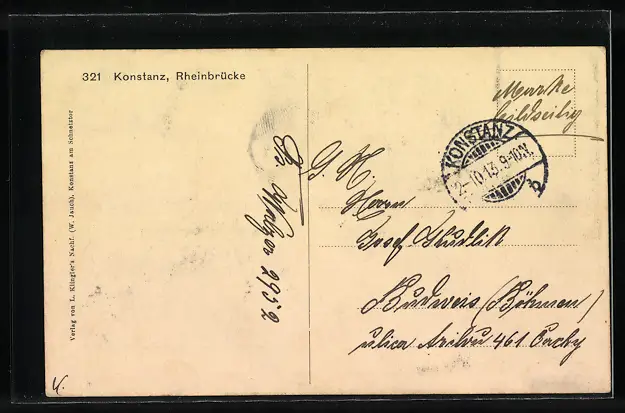 321 Konstanz, Rheinbrücke
Verlag von L. Klingler's Nachf. (W. Jauch), Konstanz am Schnetztor
Marke
bildseitig
KONSTANZ
2.10.13. 9-10N.
2952
Herrn
Josef
Budweis (Böhmen)
ulica 461